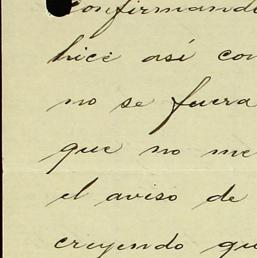 confirmando
hice así con
no se fuera
que no me
el aviso de
creyendo qu